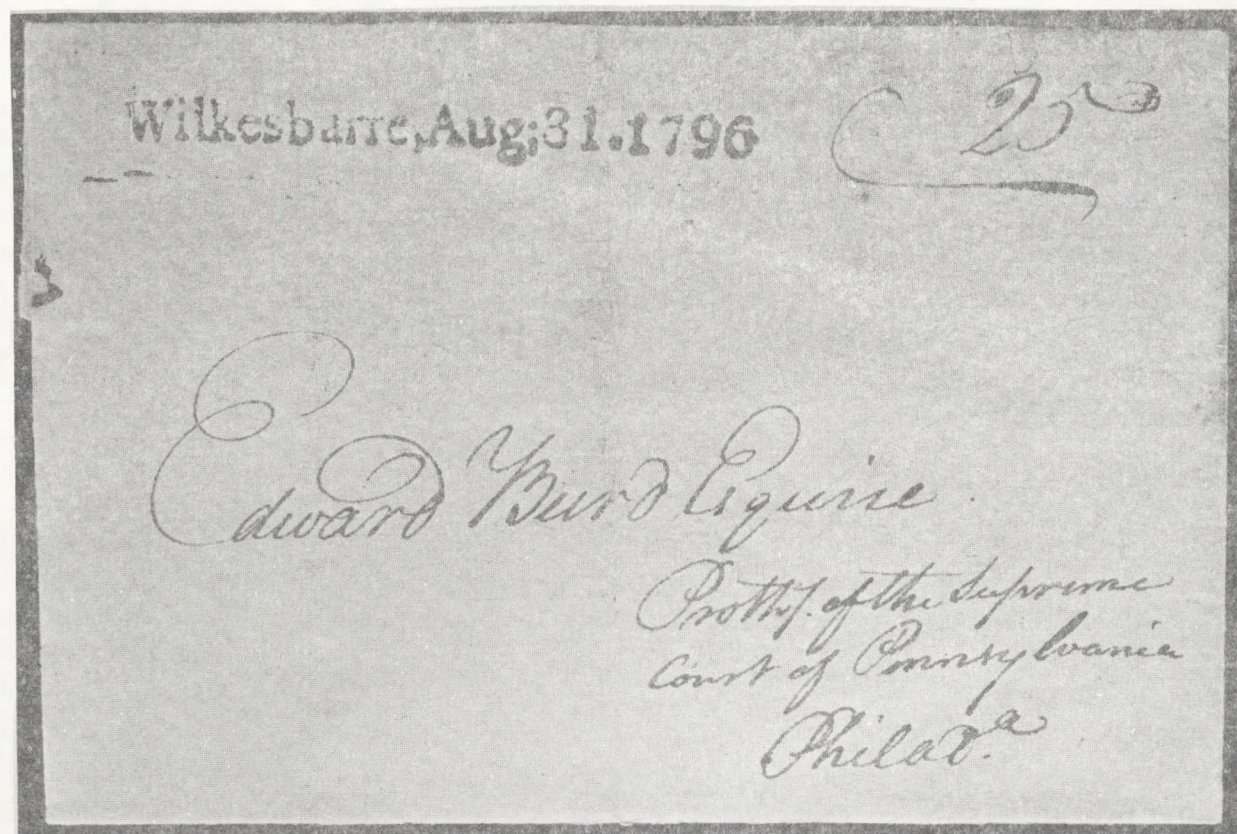 Wilkesbarre,Aug;31.1796
25
Edward Burd Esquire
Prothy. of the Supreme
Court of Pennsylvania
Philada.